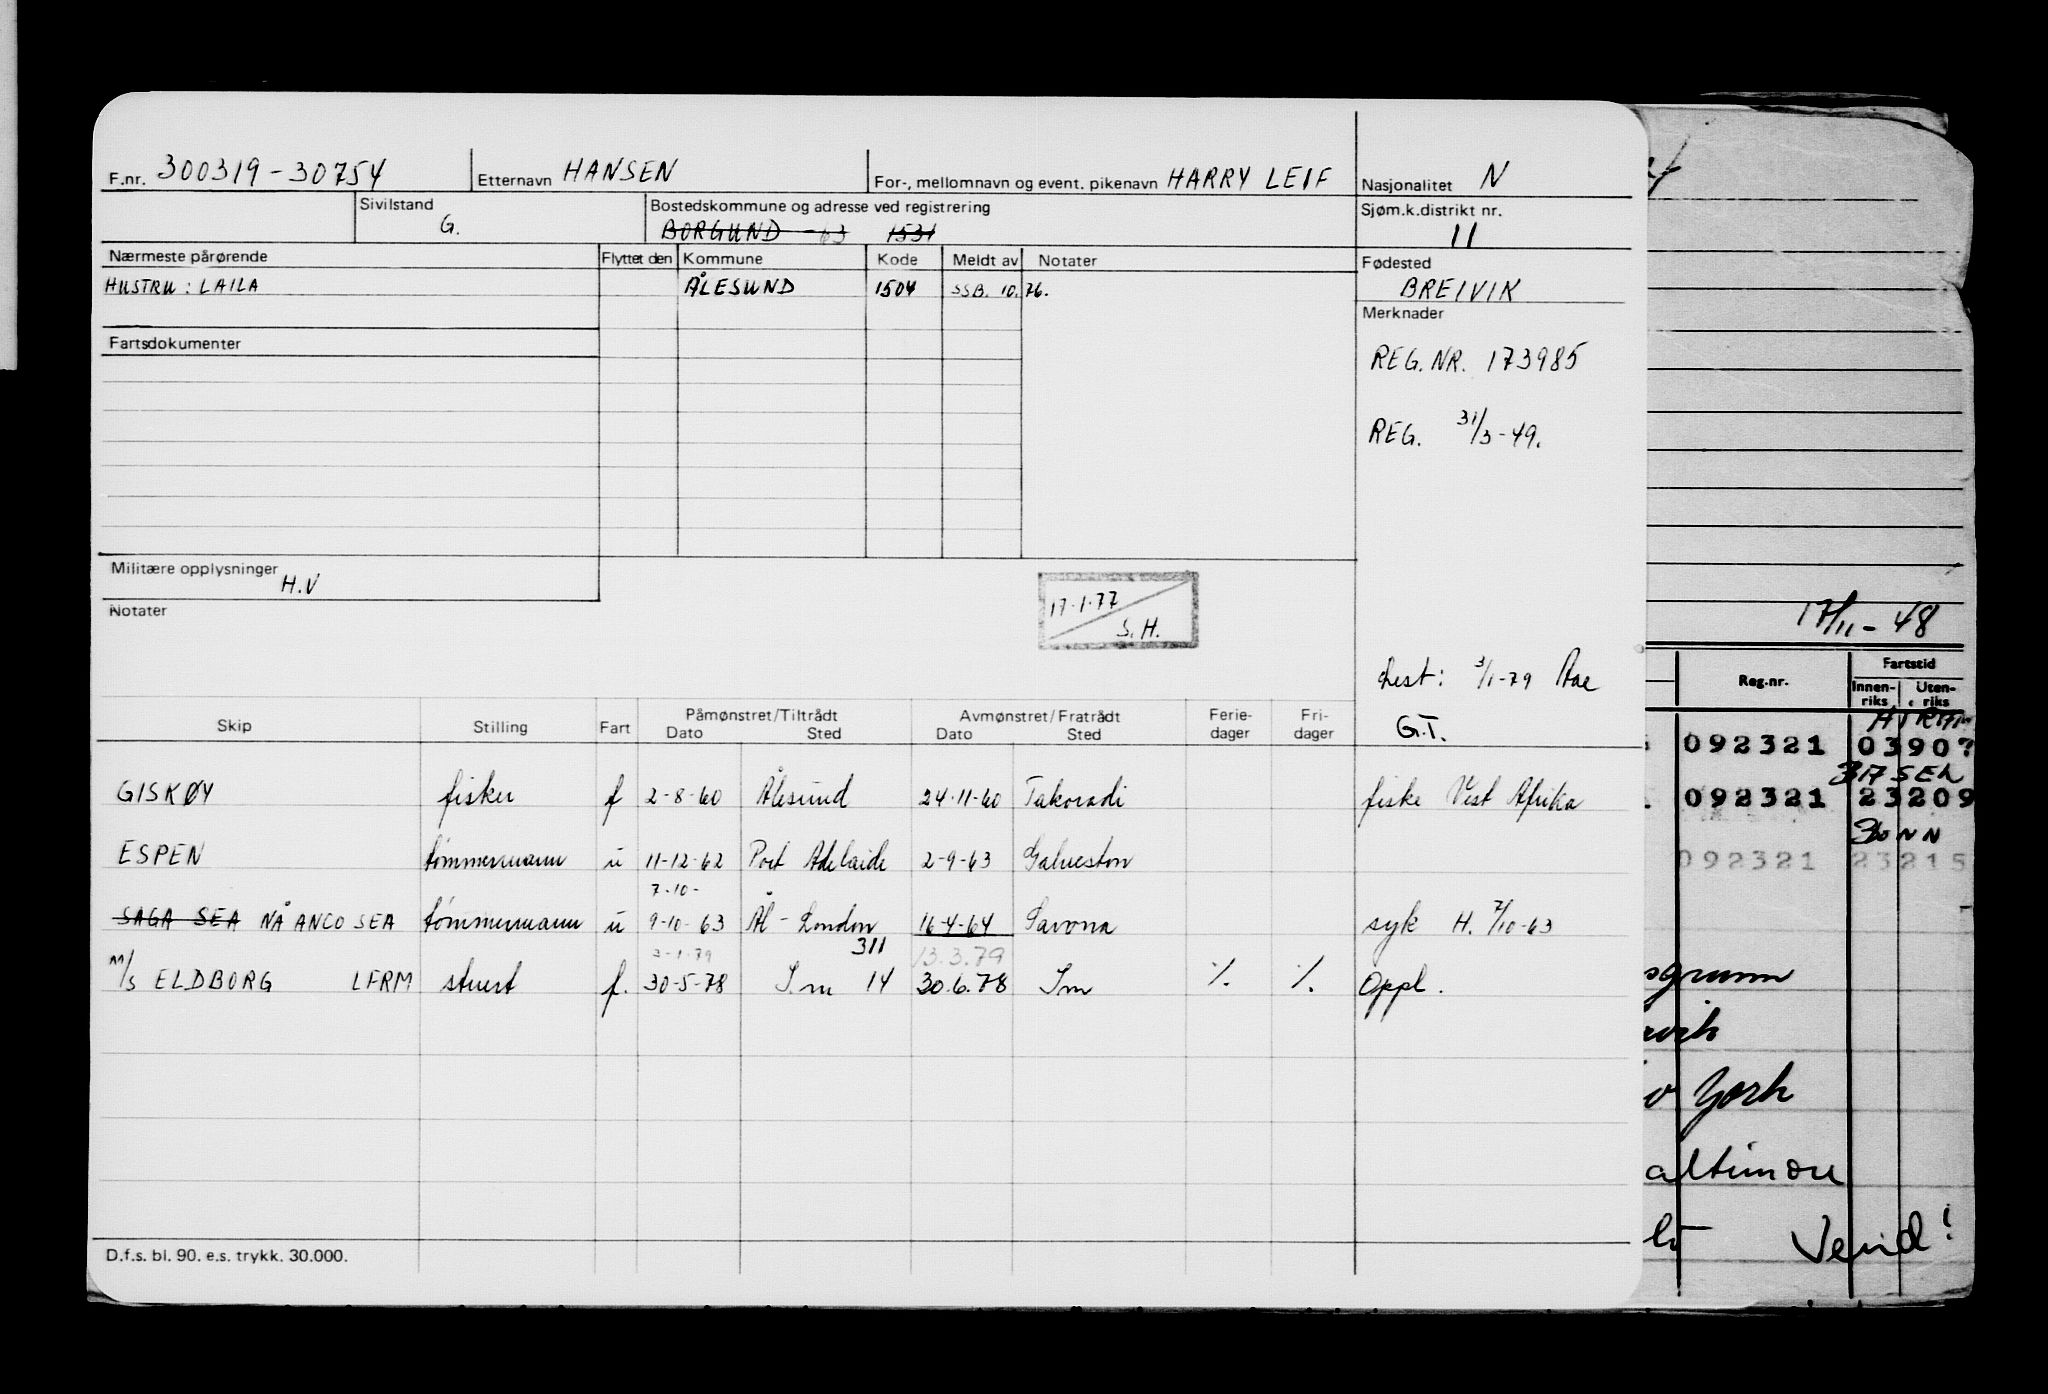 F.nr. 300319-30754 Etternavn HANSEN For-, mellomnavn og event. pikenavn HARRY LEIF Nasjonalitet N
Sivilstand G. Bostedskommune og adresse ved registrering Sjøm.k.distrikt nr. 11
BORGUND -63 1531
Nærmeste pårørende Flyttet den Kommune Kode Meldt av Notater Fødested BREIVIK
HUSTRU: LAILA ÅLESUND 1504 SSB. 10.76.
Merknader
Fartsdokumenter
REG.NR. 173985
REG. 31/3-49.
Militære opplysninger H.V
Notater
17.1.77
S.H.
3/1-79
G.T.
Skip Stilling Fart Påmønstret/Tiltrådt Dato Sted Avmønstret/Fratrådt Dato Sted Ferie-dager Fri-dager
GISKØY fisker f 2-8-60 Ålesund 24-11-60 Takoradi fiske Vest Afrika
ESPEN tømmermann u 11-12-62 Port Adelaide 2-9-63 Galveston
7-10-
SAGA SEA NÅ ANCO SEA tømmermann u 9-10-63 Ål - London 16-4-64 Savona syk H. 7/10-63
311
13.3.79
M/S ELDBORG LFRM stuert f. 30-5-78 14 30.6.78 ./. ./. Oppl.
D.f.s. bl. 90. e.s. trykk. 30.000.
17/11-48
Reg.nr. Fartstid
Innen-riks Uten-riks
092321 0390?
092321 23209
092321 23215
York
altimore
Vend!